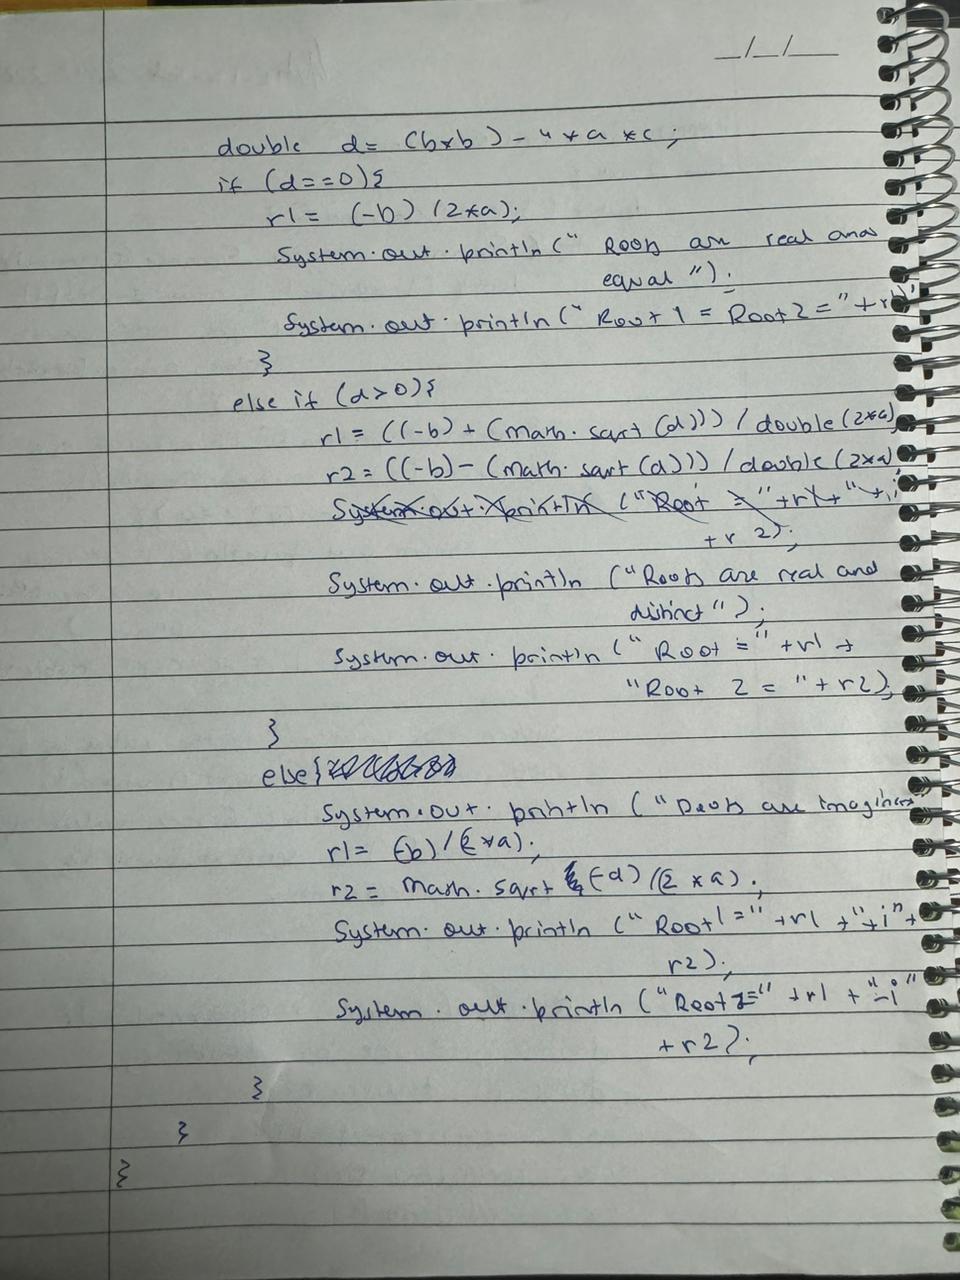 _/_/__
double d= (b*b) - 4*a*c;
if (d==0){
r1= (-b) (2*a);
System.out.println(" Roots are real and
equal ");
System.out.println(" Root 1 = Root 2 = "+r1);
}
else if (d>0){
r1= ((-b)+(math.sqrt(d))) / double(2*a)
r2= ((-b)-(math.sqrt(d))) / double(2*a)
System.out.println ("Root = "+r1+"
+r 2);
System.out.println ("Roots are real and
distinct ");
System.out.println (" Root = " +r1 +
"Root 2 = "+r2);
}
else{
System.out.println ("Roots are imaginary
r1= (-b)/(2*a);
r2= math.sqrt (-d)/(2*a);
System.out.println (" Root1=" +r1 +"+i"+
r2);
System.out.println ("Root2=" +r1 + "-i"
+r2);
}
}
}